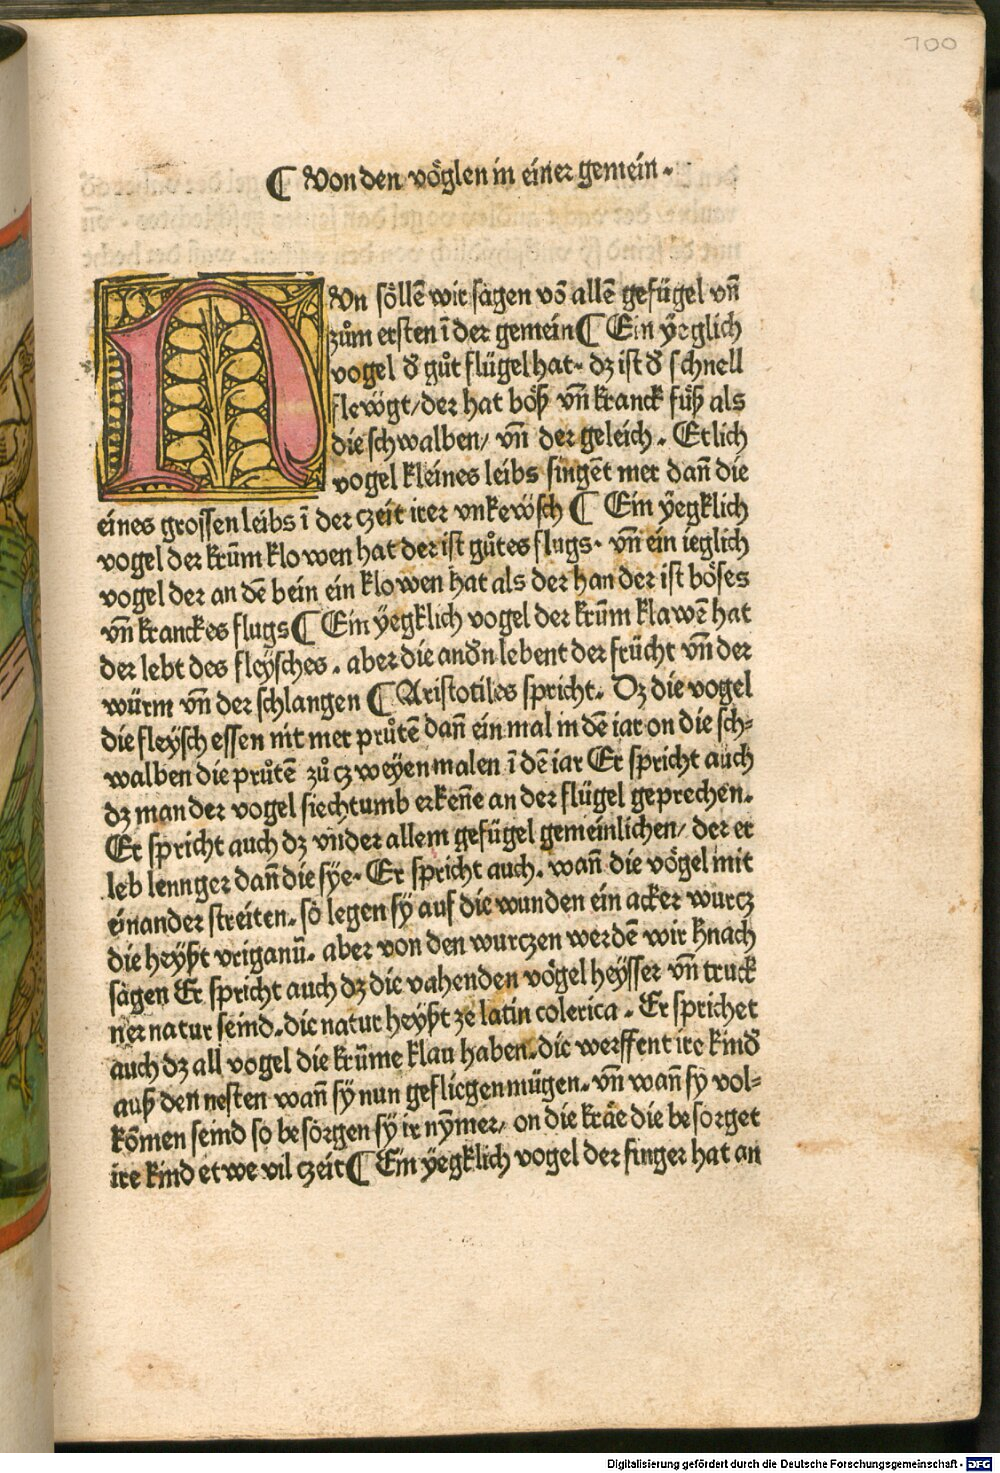 100
¶ Von den vöglen in einer gemein .
NUn söllē wir sagen võ allē gefügel vñ
zům ersten ī der gemein ¶ Ein ÿeglich
vogel đ gůt flügel hat . dz ist đ schnell
flewgt / der hat böß vñ kranck fůß als
die schwalben / vñ der geleich . Etlich
vogel kleines leibs singēt mer dañ die
eines grossen leibs ī der czeit irer vnkewsch ¶ Ein ÿegklich
vogel der krūm klowen hat der ist gůtes flugs . vñ ein ieglich
vogel der an dē bein ein klowen hat als der han der ist böses
vñ kranckes flugs ¶ Ein ÿegklich vogel der krūm klawē hat
der lebt des fleÿsches . aber die andn lebent der frücht vñ der
würm vñ der schlangen ¶ Aristotiles spricht . Dz die vogel
die fleÿsch essen nit mer průtē dañ ein mal in dē iar on die sch=
walben die průtē zů czweÿen malen ī dē iar Er spricht auch
dz man der vogel siechtumb erkeñe an der flügel geprechen .
Er spricht auch dz vnder allem gefügel gemeinlichen / der er
leb lennger dañ die sÿe . Er spricht auch . wañ die vögel mit
einander streiten . so legen sÿ auf die wunden ein acker wurcz
die heÿßt vriganū . aber von den wurczen werdē wir hnach
sagen Er spricht auch dz die vahenden vögel heÿsser vñ truck
ner natur seind . die natur heÿßt ze latin colerica . Er sprichet
auch dz all vogel die krūme klau haben . die werffent ire kinđ
auß den nesten wañ sÿ nun gefliegen mügen . vñ wañ sÿ vol=
kōmen seind so besorgen sÿ ir nÿmer / on die kräe die besorget
ire kind etwe vil czeit ¶ Ein ÿegklich vogel der finger hat an
Digitalisierung gefördert durch die Deutsche Forschungsgemeinschaft - DFG